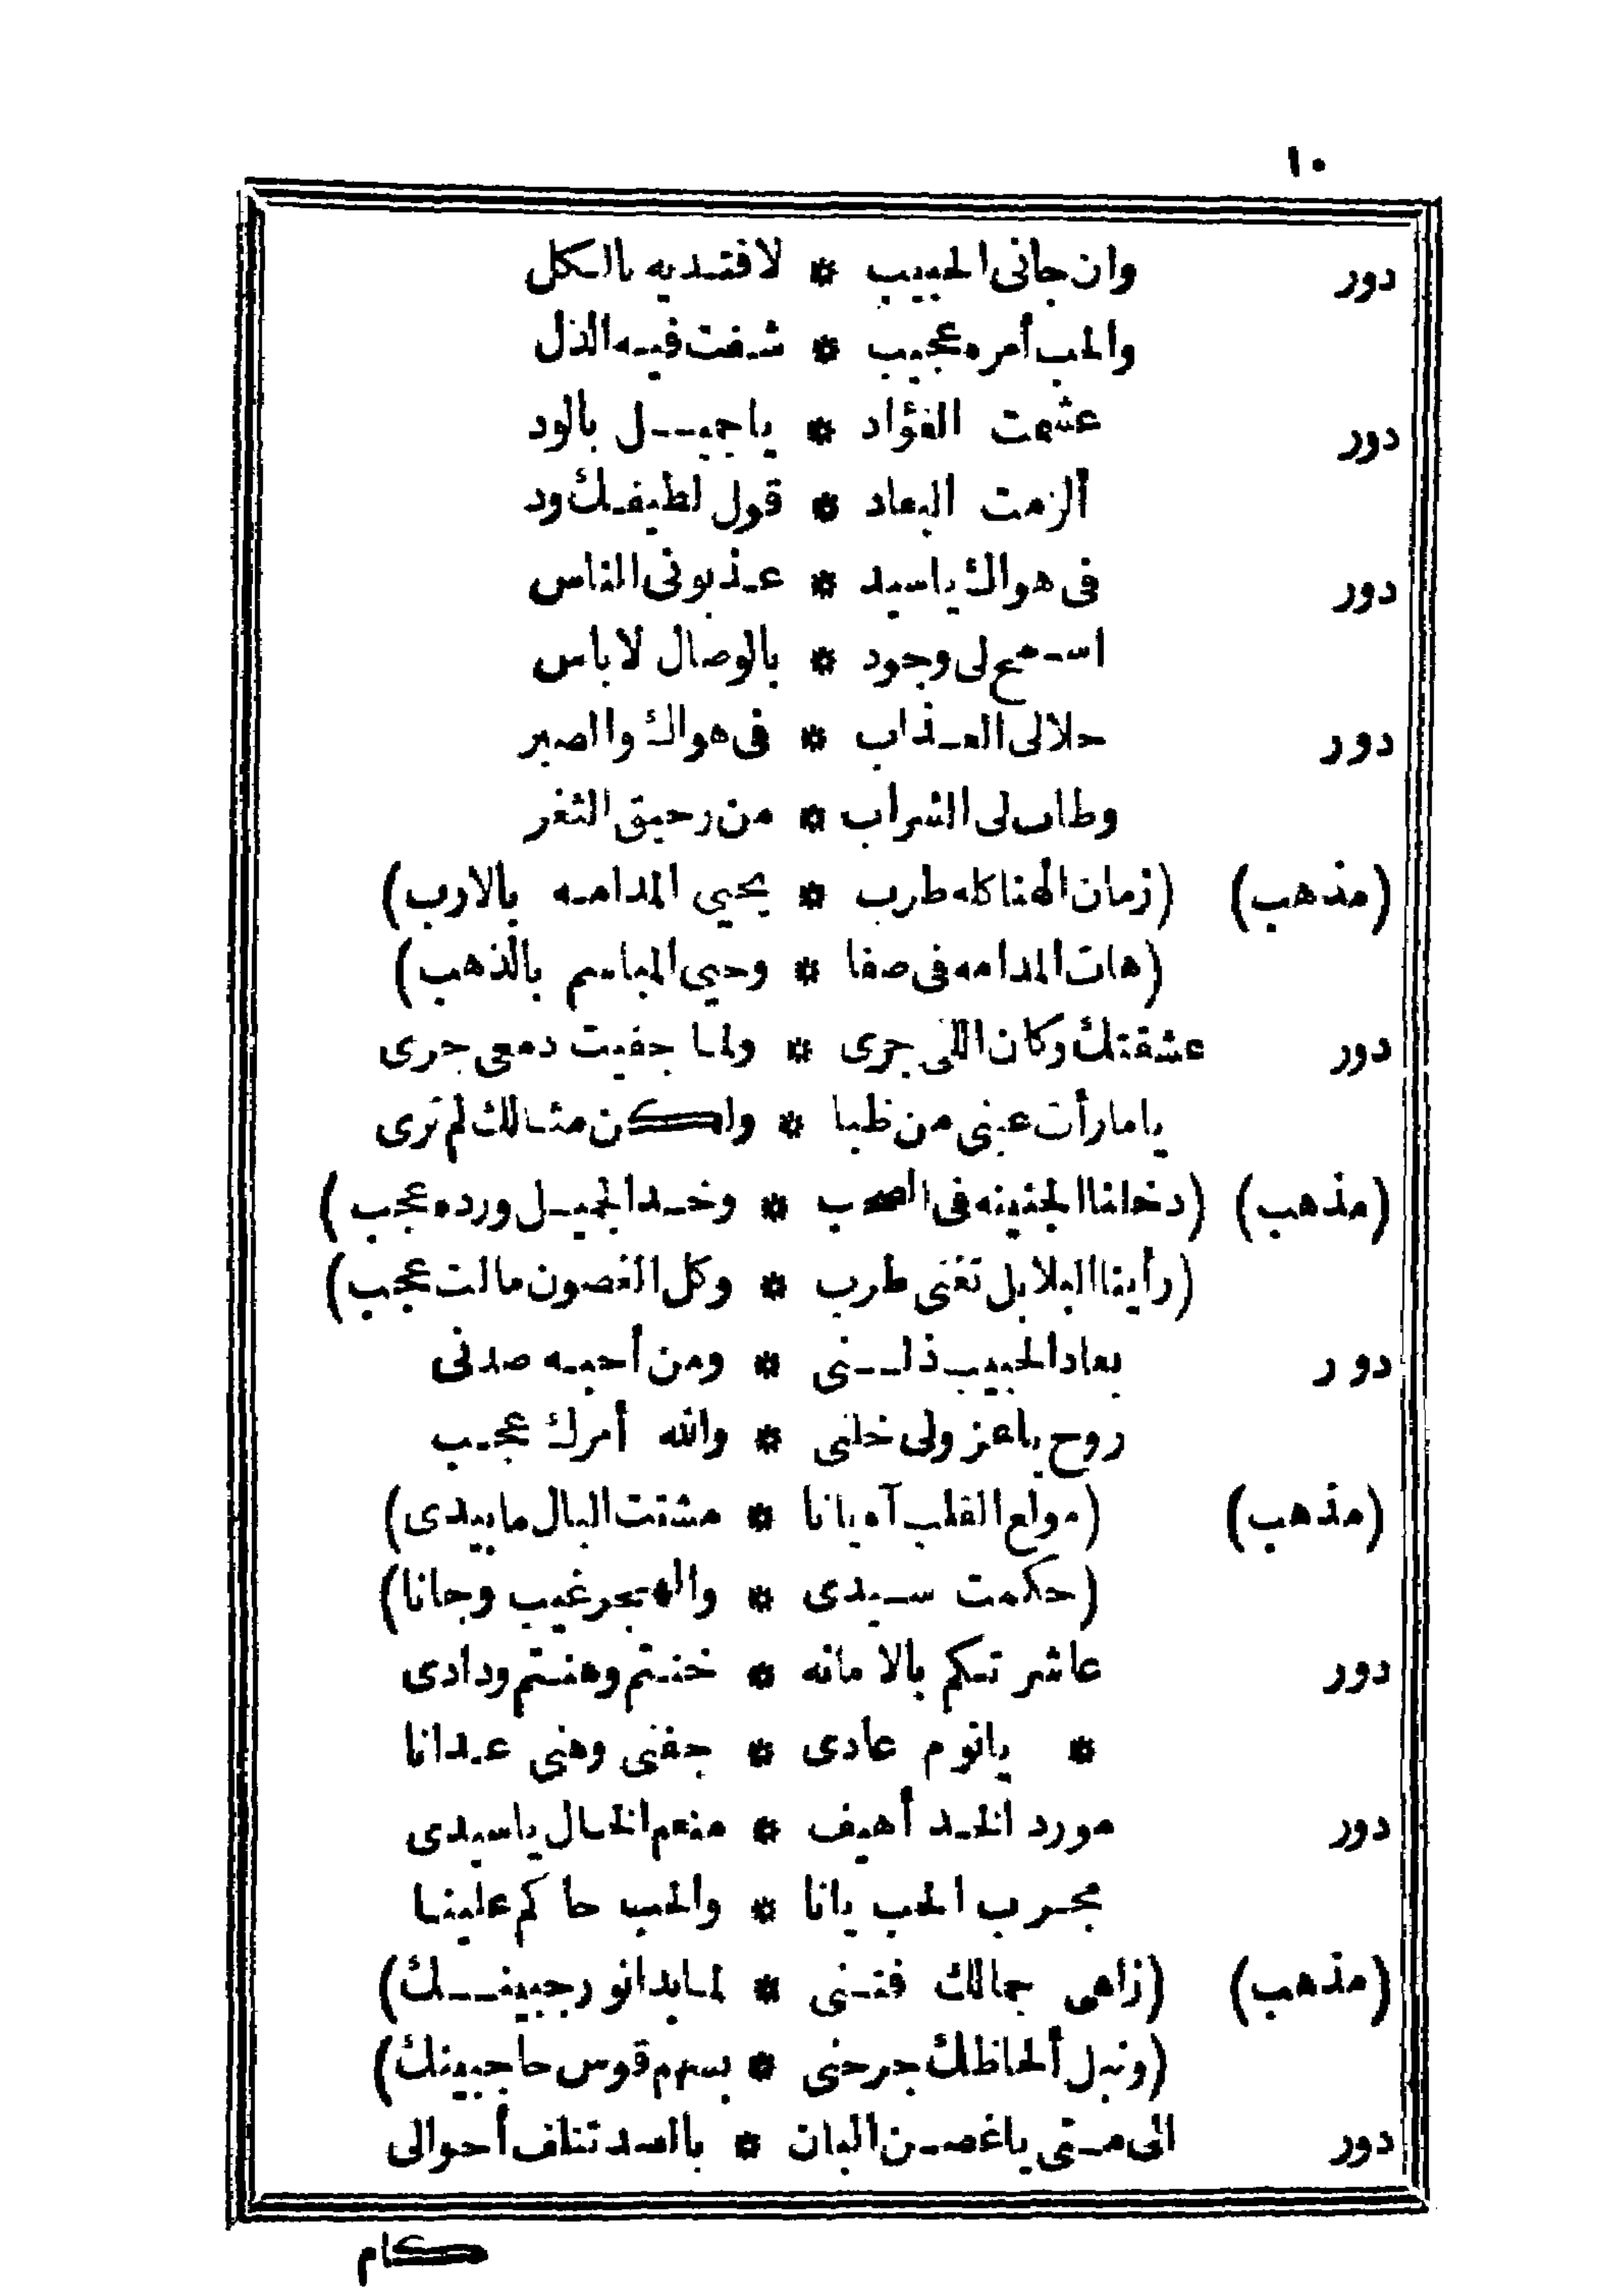 ١٠
دور وان جانى الحبيب * لافتديه بالكل
والحب أمره عجيب * شفت فيه الذل
دور عشمت الفؤاد * ياجميل بالود
ألزمت البعاد * قول لطيفك ود
دور فى هواك ياسيد * عذبونى الناس
اسمح لى وجود * بالوصال لاباس
دور حلالى العذاب * فى هواك والصبر
وطاب لى الشراب * من رحيق الثغر
(مذهب) (زمان الهنا كله طرب * يحيى المدامه بالارب)
(هات المدامه فى صفا * وحيى المباسم بالذهب)
دور عشقتك وكان اللى جرى * ولما جفيت دمعى جرى
يامارأت عينى من ظبا * ولكن مثالك لم ترى
(مذهب) (دخلنا الجنينه فى * وخد الجميل ورده عجب)
(رأينا البلابل تغنى طرب * وكل الغصون مالت عجب)
دور بعاد الحبيب ذلنى * ومن أحبه صدنى
روح ياعزولى خلنى * والله أمرك عجيب
(مذهب) (مولع القلب آه يانا * مشتت البال مابيدى)
(حكمت سيدى * والهجر غيب وجانا)
دور عاشرتكم بالامانه * خنتم وهنتم ودادى
* يانوم عادى * جفنى وهنى عدانا
دور مورد الخد أهيف * منعم الخال ياسيدى
مجرب الحب يانا * والحب حاكم علينا
(مذهب) (زاهى جمالك فتنى * لمابدانور جبينك)
(ونبل ألحاظك جرحنى * بسهم قوس حاجبينك)
دور الى متى ياغصن البان * بالصد تتلف أحوالى
كام